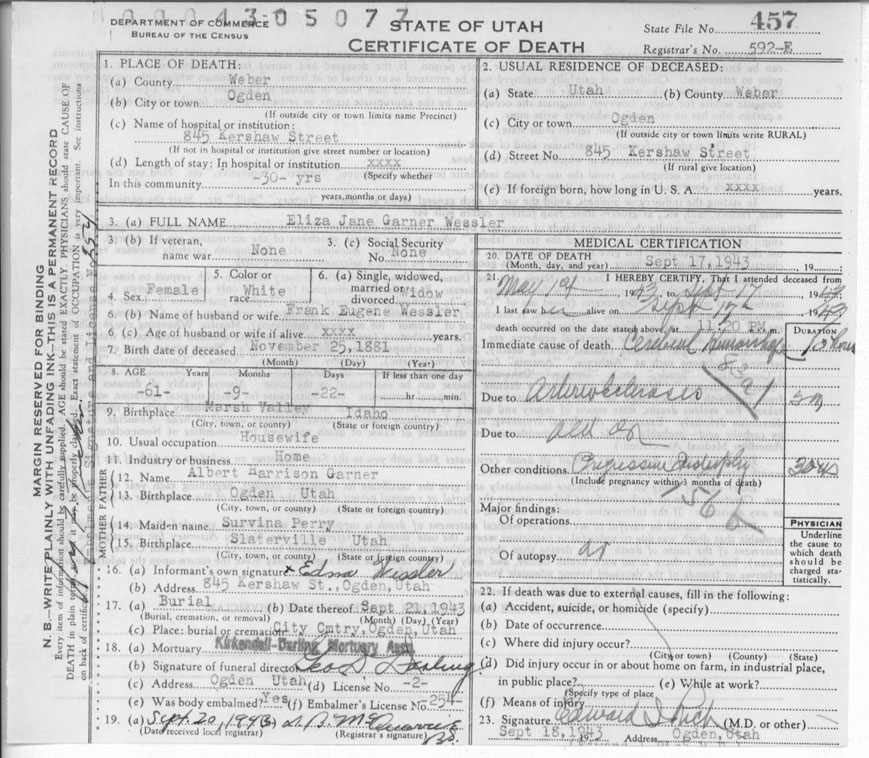 0 0 0 0 4 3 - 0 5 0 7 7
DEPARTMENT OF COMMERCE
BUREAU OF THE CENSUS
STATE OF UTAH
CERTIFICATE OF DEATH
State File No. 457
Registrar's No. 592-E
1. PLACE OF DEATH:
(a) County Weber
(b) City or town Ogden
(If outside city or town limits name Precinct)
(c) Name of hospital or institution:
845 Kershaw Street
(If not in hospital or institution give street number or location)
(d) Length of stay: In hospital or institution xxxx
(Specify whether
In this community -30- yrs
years, months or days)
2. USUAL RESIDENCE OF DECEASED:
(a) State Utah (b) County Weber
(c) City or town Ogden
(If outside city or town limits write RURAL)
(d) Street No 845 Kershaw Street
(If rural give location)
(e) If foreign born, how long in U. S. A. xxxx years.
3. (a) FULL NAME Eliza Jane Garner Wessler
3. (b) If veteran, name war None 3. (c) Social Security No. None
4. Sex Female 5. Color or race White 6. (a) Single, widowed, married or divorced Widow
6. (b) Name of husband or wife Frank Eugene Wessler
6. (c) Age of husband or wife if alive xxxx years.
7. Birth date of deceased November 25, 1881
(Month) (Day) (Year)
8. AGE Years Months Days If less than one day
-61- -9- -22- hr. min.
9. Birthplace Marsh Valley Idaho
(City, town, or county) (State or foreign country)
10. Usual occupation Housewife
11. Industry or business Home
FATHER
12. Name Albert Harrison Garner
13. Birthplace Ogden Utah
(City, town, or county) (State or foreign country)
MOTHER
14. Maiden name Survina Perry
15. Birthplace Slaterville Utah
(City, town, or county) (State or foreign country)
16. (a) Informant's own signature x Edna Wessler
(b) Address 845 Kershaw St., Ogden, Utah
17. (a) Burial (b) Date thereof Sept 21, 1943
(Burial, cremation, or removal) (Month) (Day) (Year)
(c) Place: burial or cremation City Cmtry, Ogden, Utah
18. (a) Mortuary Kirkendall-Darling Mortuary Assn
(b) Signature of funeral director Leo S. Darling
(c) Address Ogden Utah (d) License No. -2-
(e) Was body embalmed? Yes (f) Embalmer's License No. 254-
19. (a) Sept. 20, 1943
(Date received local registrar) (Registrar's signature)
MEDICAL CERTIFICATION
20. DATE OF DEATH
(Month, day, and year) Sept 17, 1943 19
21. I HEREBY CERTIFY, That I attended deceased from
May 19, 1943 to Sept 17, 1943
I last saw her alive on Sept 17, 1943
death occurred on the date stated above, at 11:20 P m.
DURATION
Immediate cause of death Cerebral Hemorrhage
Due to Arteriosclerosis
Due to
Other conditions Progressive
(Include pregnancy within 3 months of death)
Major findings:
Of operations
Of autopsy
PHYSICIAN
Underline
the cause to
which death
should be
charged sta-
tistically.
22. If death was due to external causes, fill in the following:
(a) Accident, suicide, or homicide (specify)
(b) Date of occurrence
(c) Where did injury occur?
(City or town) (County) (State)
(d) Did injury occur in or about home on farm, in industrial place,
in public place? (e) While at work?
(Specify type of place
(f) Means of injury
23. Signature Edward I. Rich (M.D. or other)
Sept 18, 1943 19 Address Ogden, Utah
MARGIN RESERVED FOR BINDING
N. B.—WRITE PLAINLY WITH UNFADING INK—THIS IS A PERMANENT RECORD
Every item of information should be carefully supplied. AGE should be stated EXACTLY. PHYSICIANS should state CAUSE OF
DEATH in plain terms so it may be properly classified. Exact statement of OCCUPATION is very important. See instructions
on back of certificate.
Embalmer's Signature and License No. 254